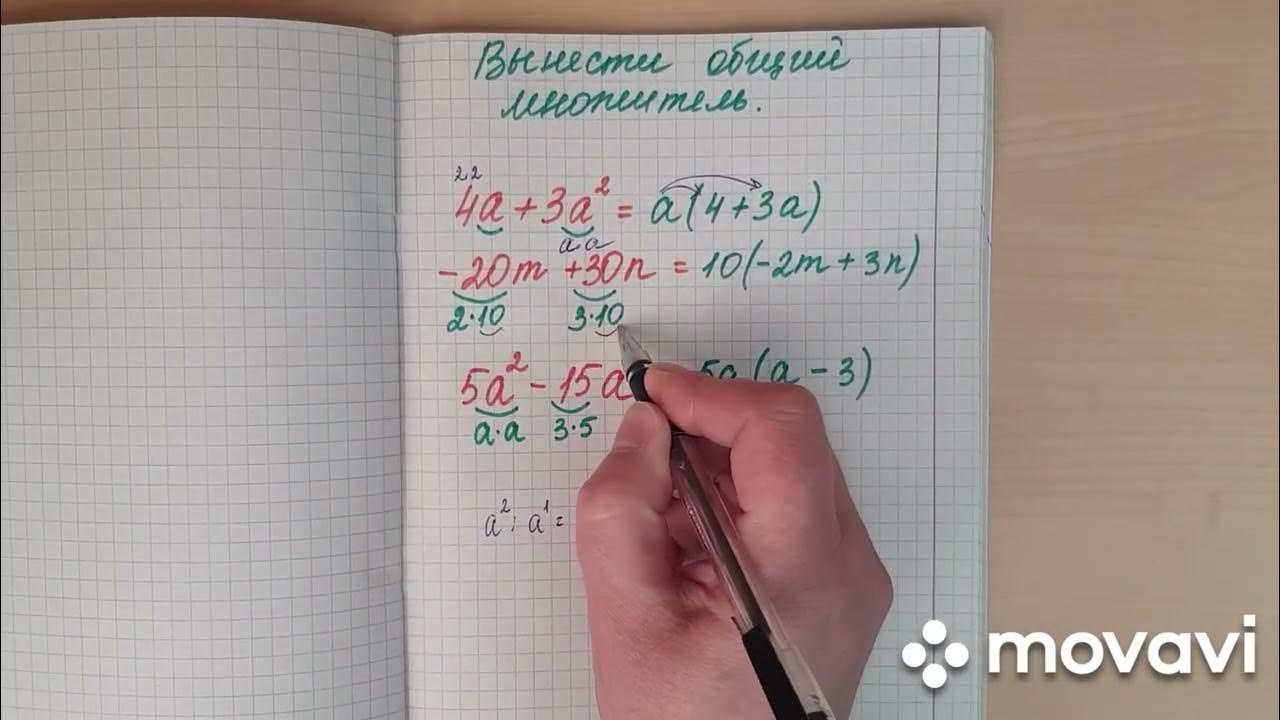 Вынести общий
множитель.
2.2
4a + 3a² = a(4 + 3a)
a·a
-20m +30n = 10(-2m + 3n)
2·10 3·10
5a² - 15a 5a(a - 3)
a·a 3·5
a² : a¹ =
movavi